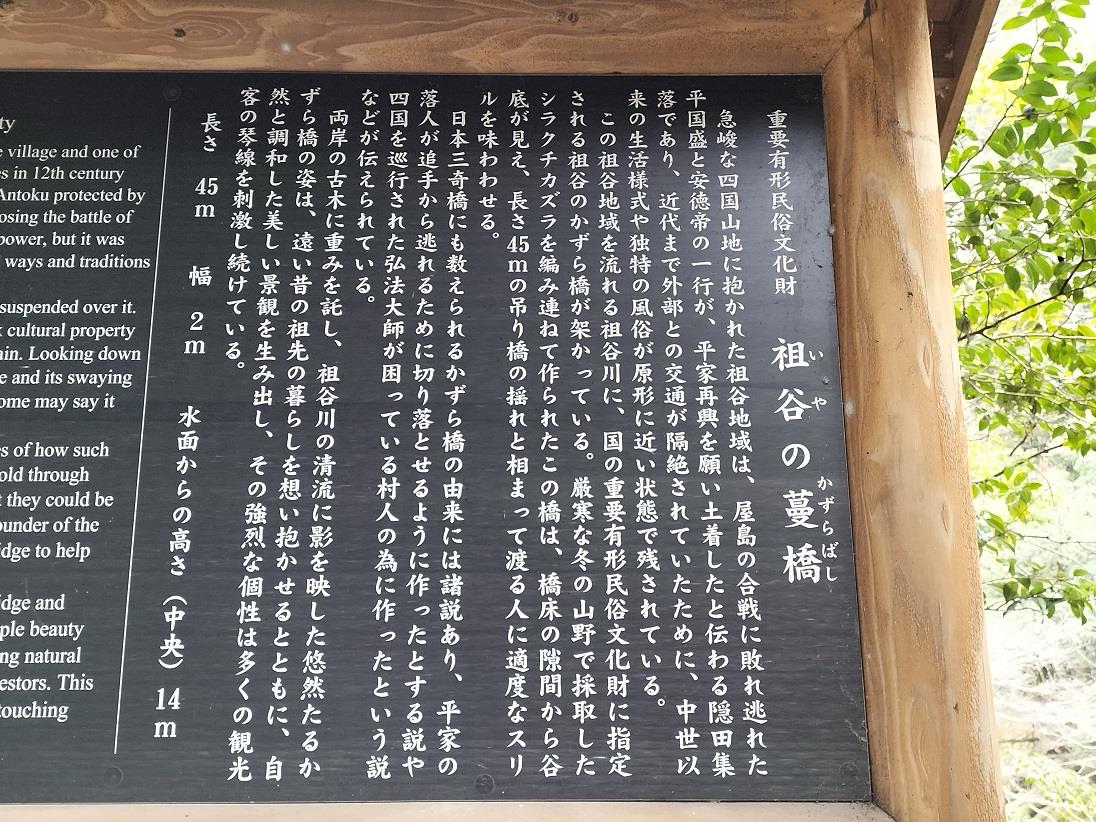 重要有形民俗文化財　祖谷の蔓橋
いや　かずらばし
急峻な四国山地に抱かれた祖谷地域は、屋島の合戦に敗れ逃れた
平国盛と安徳帝の一行が、平家再興を願い土着したと伝わる隠田集
落であり、近代まで外部との交通が隔絶されていたために、中世以
来の生活様式や独特の風俗が原形に近い状態で残されている。
この祖谷地域を流れる祖谷川に、国の重要有形民俗文化財に指定
される祖谷のかずら橋が架かっている。厳寒な冬の山野で採取した
シラクチカズラを編み連ねて作られたこの橋は、橋床の隙間から谷
底が見え、長さ45mの吊り橋の揺れと相まって渡る人に適度なスリ
ルを味わわせる。
日本三奇橋にも数えられるかずら橋の由来には諸説あり、平家の
落人が追手から逃れるために切り落とせるように作ったとする説や
四国を巡行された弘法大師が困っている村人の為に作ったという説
などが伝えられている。
両岸の古木に重みを託し、祖谷川の清流に影を映した悠然たるか
ずら橋の姿は、遠い昔の祖先の暮らしを想い抱かせるとともに、自
然と調和した美しい景観を生み出し、その強烈な個性は多くの観光
客の琴線を刺激し続けている。
長さ　45m　幅　2m　水面からの高さ（中央）14m
ty
e village and one of
es in 12th century
Antoku protected by
osing the battle of
power, but it was
ways and traditions
suspended over it.
cultural property
in. Looking down
e and its swaying
ome may say it
es of how such
old through
t they could be
ounder of the
idge to help
idge and
ple beauty
ng natural
estors. This
touching